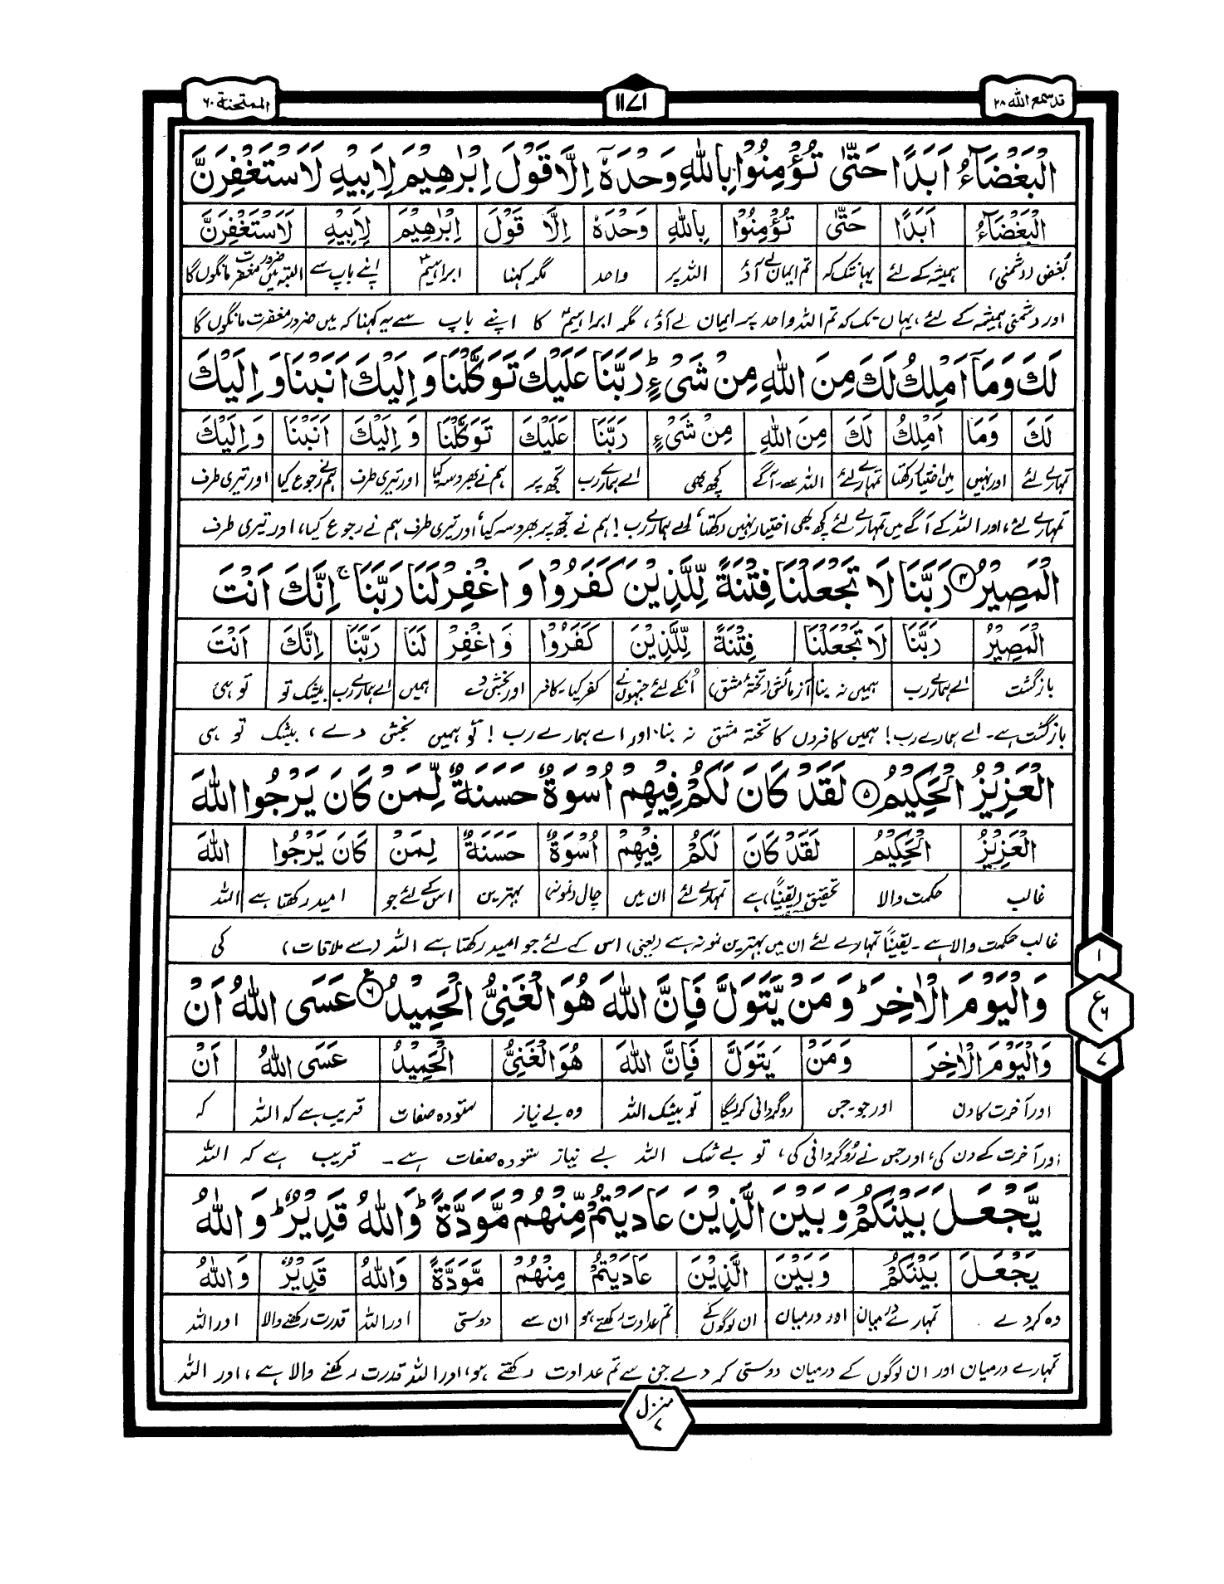 قد سمع الله ۲۸
۱۱۷۱
الممتحنة ۶۰
الْبَغْضَآءُ اَبَدًا حَتّٰى تُؤْمِنُوْا بِاللّٰهِ وَحْدَهٗۤ اِلَّا قَوْلَ اِبْرٰهِيْمَ لِاَبِيْهِ لَاَسْتَغْفِرَنَّ
الْبَغْضَآءُ اَبَدًا حَتّٰى تُؤْمِنُوْا بِاللّٰهِ وَحْدَهٗ اِلَّا قَوْلَ اِبْرٰهِيْمَ لِاَبِيْهِ لَاَسْتَغْفِرَنَّ
بُغض (دشمنی) ہمیشہ کے لئے یہانتک کہ تم ایمان لے آؤ اللہ پر واحد مگر کہنا ابراہیمؑ اپنے باپ سے البتہ میں ضرور مغفرت مانگوں گا
اور دشمنی ہمیشہ کے لئے، یہاں تک کہ تم اللہ واحد پر ایمان لے آؤ، مگر ابراہیمؑ کا اپنے باپ سے یہ کہنا کہ میں ضرور مغفرت مانگوں گا
لَكَ وَمَاۤ اَمْلِكُ لَكَ مِنَ اللّٰهِ مِنْ شَيْءٍ ؕ رَبَّنَا عَلَيْكَ تَوَكَّلْنَا وَاِلَيْكَ اَنَبْنَا وَاِلَيْكَ
لَكَ وَمَا اَمْلِكُ لَكَ مِنَ اللّٰهِ مِنْ شَيْءٍ رَبَّنَا عَلَيْكَ تَوَكَّلْنَا وَاِلَيْكَ اَنَبْنَا وَاِلَيْكَ
تمہارے لئے اور نہیں میں اختیار رکھتا تمہارے لئے اللہ سے آگے کچھ بھی اے ہمارے رب تجھ پر ہم نے بھروسہ کیا اور تیری طرف ہم نے رجوع کیا اور تیری طرف
تمہارے لئے، اور اللہ کے آگے میں تمہارے لئے کچھ بھی اختیار نہیں رکھتا، اے ہمارے رب! ہم نے تجھ پر بھروسہ کیا، اور تیری طرف ہم نے رجوع کیا، اور تیری طرف
الْمَصِيْرُ ۴ رَبَّنَا لَا تَجْعَلْنَا فِتْنَةً لِّلَّذِيْنَ كَفَرُوْا وَاغْفِرْ لَنَا رَبَّنَا ۚ اِنَّكَ اَنْتَ
الْمَصِيْرُ رَبَّنَا لَا تَجْعَلْنَا فِتْنَةً لِّلَّذِيْنَ كَفَرُوْا وَاغْفِرْ لَنَا رَبَّنَا اِنَّكَ اَنْتَ
بازگشت اے ہمارے رب ہمیں نہ بنا آزمائش (تختۂ مشق) اُنکے لئے جنہوں نے کفر کیا۔ کافر اور بخش دے ہمیں اے ہمارے رب بیشک تو تو ہی
بازگشت ہے۔ اے ہمارے رب! ہمیں کافروں کا تختہ مشق نہ بنا، اور اے ہمارے رب! تو ہمیں بخش دے، بیشک تو ہی
الْعَزِيْزُ الْحَكِيْمُ ۵ لَقَدْ كَانَ لَكُمْ فِيْهِمْ اُسْوَةٌ حَسَنَةٌ لِّمَنْ كَانَ يَرْجُوا اللّٰهَ
الْعَزِيْزُ الْحَكِيْمُ لَقَدْ كَانَ لَكُمْ فِيْهِمْ اُسْوَةٌ حَسَنَةٌ لِمَنْ كَانَ يَرْجُوا اللّٰهَ
غالب حکمت والا تحقیق (یقیناً) ہے تمہارے لئے ان میں چال (نمونہ) بہترین اس کے لئے جو امید رکھتا ہے اللہ
غالب حکمت والا ہے۔ یقیناً تمہارے لئے ان میں بہترین نمونہ ہے (یعنی) اس کے لئے جو امید رکھتا ہے اللہ (سے ملاقات) کی
وَالْيَوْمَ الْاٰخِرَ ؕ وَمَنْ يَّتَوَلَّ فَاِنَّ اللّٰهَ هُوَ الْغَنِيُّ الْحَمِيْدُ ۶ عَسَى اللّٰهُ اَنْ
وَالْيَوْمَ الْاٰخِرَ وَمَنْ يَتَوَلَّ فَاِنَّ اللّٰهَ هُوَ الْغَنِيُّ الْحَمِيْدُ عَسَى اللّٰهُ اَنْ
اور آخرت کا دن اور جو۔ جس روگردانی کریگا تو بیشک اللہ وہ بے نیاز ستودہ صفات قریب ہے کہ اللہ کہ
اور آخرت کے دن کی، اور جس نے رُوگردانی کی، تو بے شک اللہ بے نیاز ستودہ صفات ہے۔ قریب ہے کہ اللہ
يَّجْعَلَ بَيْنَكُمْ وَبَيْنَ الَّذِيْنَ عَادَيْتُمْ مِّنْهُمْ مَّوَدَّةً ؕ وَاللّٰهُ قَدِيْرٌ ؕ وَاللّٰهُ
يَجْعَلَ بَيْنَكُمْ وَبَيْنَ الَّذِيْنَ عَادَيْتُمْ مِنْهُمْ مَّوَدَّةً وَاللّٰهُ قَدِيْرٌ وَاللّٰهُ
وہ کر دے تمہارے درمیان اور درمیان ان لوگوں کے تم عداوت رکھتے ہو ان سے دوستی اور اللہ قدرت رکھنے والا اور اللہ
تمہارے درمیان اور ان لوگوں کے درمیان دوستی کر دے جن سے تم عداوت رکھتے ہو، اور اللہ قدرت رکھنے والا ہے، اور اللہ
۱
ع
۶
۷
منزل
۷